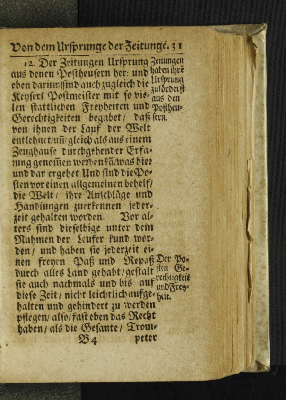 Von dem Ursprunge der Zeitunge. 31
12. Der Zeitungen Ursprung
aus denen Postheusern her: und
eben darum sind auch zugleich die
Keyserl Postmeister mit so vie-
len stattlichen Freyheiten und
Gerechtigkeiten begabet / daß
von ihnen der Lauf der Welt
entlehnet / und gleich als aus einem
Zeughause durchgehender Erfa-
rung genommen werden kā / was hier
und dar ergehet. Und sind die Po-
sten vor einen allgemeinen behelf /
die Welt / ihre Anschläge und
Handlungen zuerkennen jeder-
zeit gehalten worden. Vor al-
ters sind dieselbige unter dem
Nahmen der Leufer kund wor-
den / und haben sie jederzeit ei-
nen freyen Paß und Repaß
durch alles Land gehabt / gestalt
sie auch nachmals und bis auf
diese Zeit / nicht leichtlich aufge-
halten und gehindert zu werden
pflegen / also / fast eben das Recht
haben / als die Gesante / Trom-
B 4 peter
Zeitungen
haben ihrē
Ursprung
zuförderst
aus den
Postheu-
sern.
Der Po-
sten Ge-
rechtigkeit
und Frey-
heit.